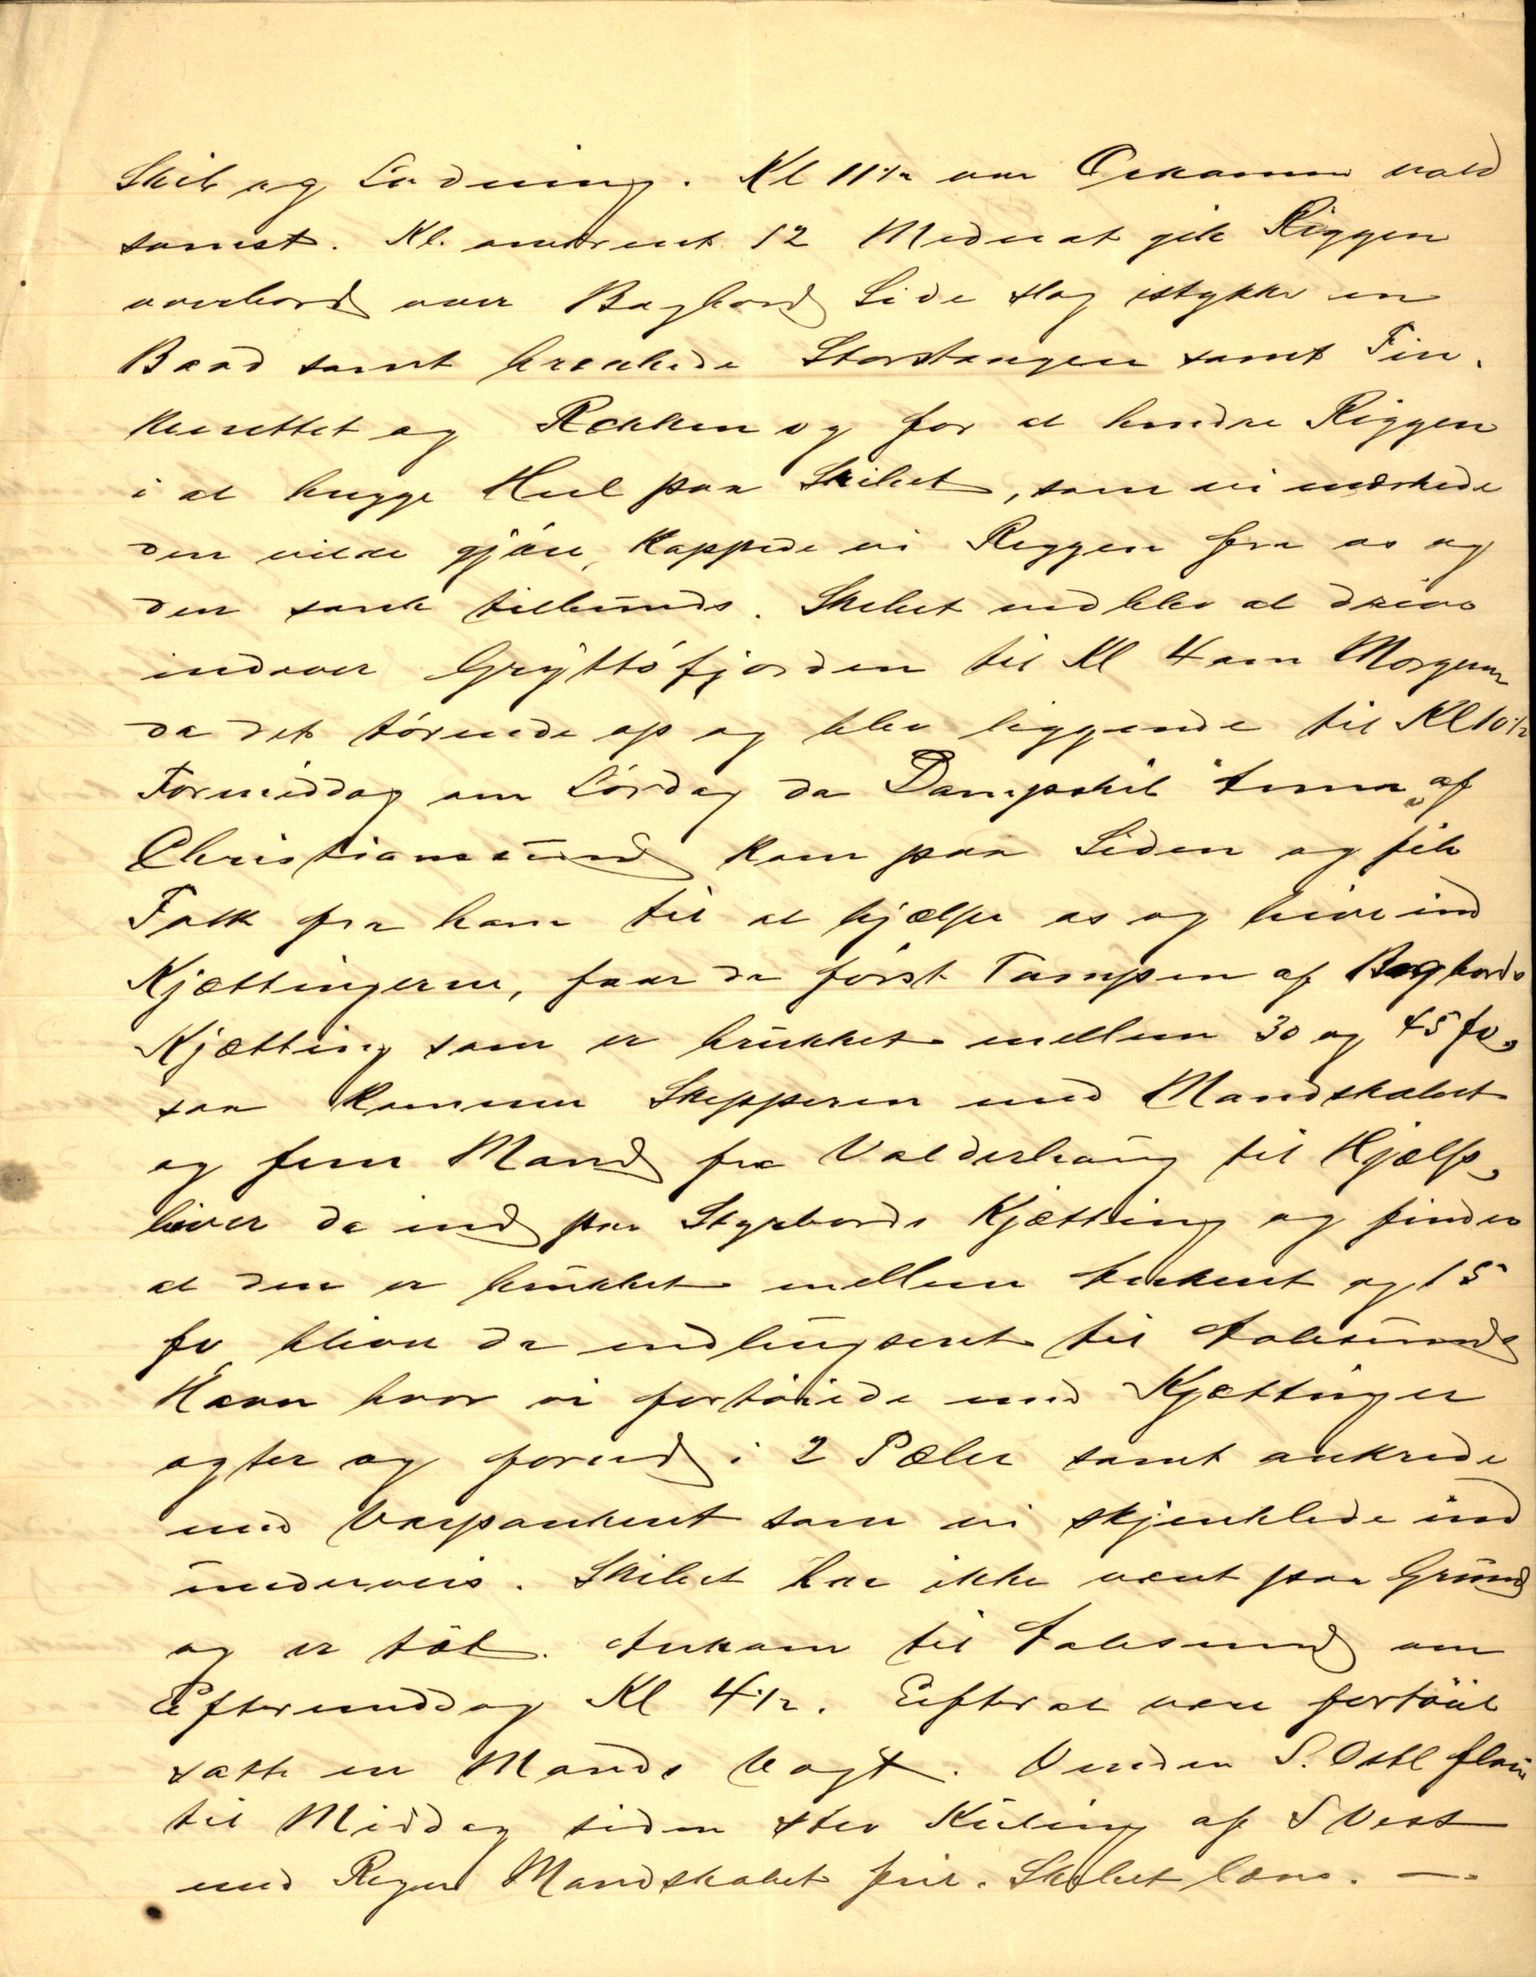 Skib og Ladning. Kl 11½ var Orkanen vold
somst. Kl. omtrent 12 Midnat gik Riggen
overbord over Bagbord Side slog istykke en
Baad samt brækkede Storstangen samt Fin¬
kenettet og Rækken og for at hindre Riggen
i at hugge Hul paa Skibet, som vi mærkede
den vilde gjöre, kappede vi Riggen fra os og
den sank tilbunds. Skibet vedblev at drive
indover Gryttöfjorden til Kl 4 om Morgenen
da det törnede op og blev liggende til Kl 10½
Formiddag om Lördag da Dampskib "Anna" af
Christiansund kom paa Siden og fik
Folk fra ham til at hjælpe os og hive ind
Kjættingerne, faar da först Tampen af Bagbords
Kjætting som er brukket mellem 30 og 45 fv,
saa kommer Skipperen med Mandskabet
og fem Mand fra Valderhaug til Hjælp,
hiver da ind paa Styrbords Kjætting og finder
at den er brukket mellem Ankeret og 15
fv, bliver da indbugseret til Aalesunds
Havn hvor vi fortöiede med Kjættinger
agter og forud i 2 Pæler samt ankrede
med Varpankeret som vi skjenklede ind
underveis. Skibet har ikke været paa Grund
og er tæt. Ankom til Aalesund om
Eftermiddag Kl 4½. Efter at være fortöiet
satte en Mands Vagt. Vinden S. Ostl flau
til Middag siden stiv Kuling af S Vest
med Regn Mandskabet frir. Skibet læns. —